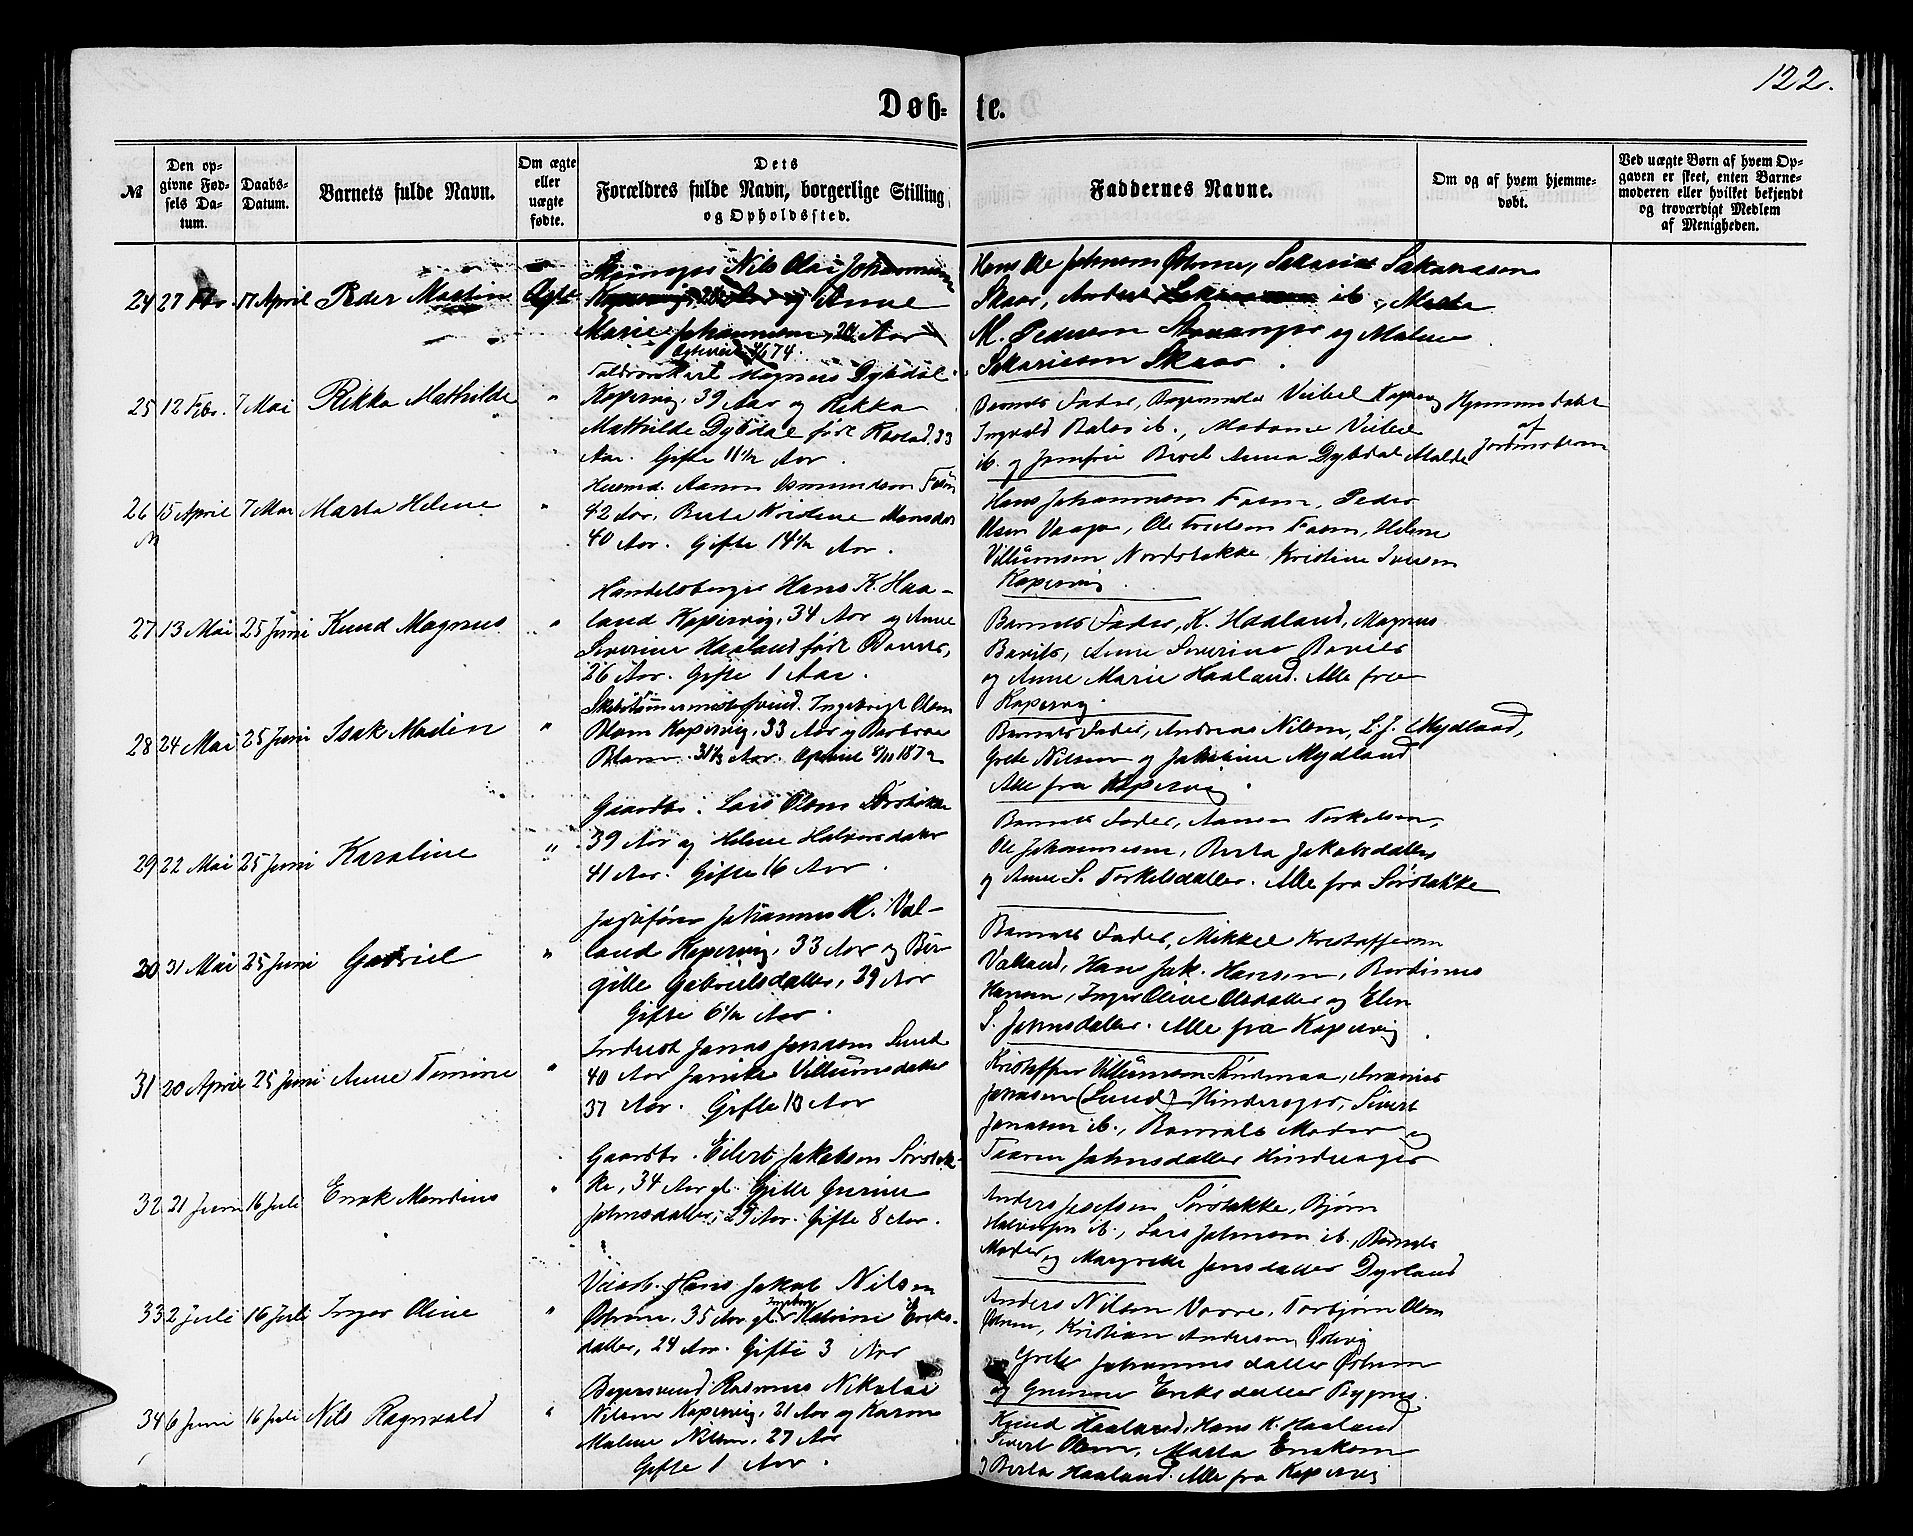 122.
Døb- te.
№
Den opgivne Fødsels Datum.
Daabs-Datum.
Barnets fulde Navn.
Om ægte eller uægte fødte.
Dets Forældres fulde Navn, borgerlige Stilling og Opholdssted.
Faddernes Navne.
Om og af hvem hjemmedøbt.
Ved uægte Børn af hvem Opgaven er skeet, enten Barnemoderen eller hvilket bekjendt og troværdigt Medlem af Menigheden.
24 27 Fbr. 17 April Peder Martin Ægte
Nils Olai Johannesen
Kopervig, og Anne
Marie Johannesen, 24 Aar
Hans Ole Johnsen Østrem, Sakarias Sakariasen
Skaar, Anders ib., Marta
M. Pedersen Stavanger og Malene
Sakariasen Skaar.
25 12 Fbr. 7 Mai Rikka Mathilde "
Magnus Dybdal
Kopervig, 39 Aar og Rikka
Mathilde Dybdal født 33
Aar. Gifte 11½ Aar.
Barnets Fader, Kopervig
Ingvald ib., Madame
ib. og Jomfru Anna Dybdal Molde
Hjemmedøbt
af
Jordmoderen
26 15 April 7 Mai Marta Helene "
Husmd. Aanen Osmundsen
42 Aar, Berta Kristine
40 Aar. Gifte 14½ Aar.
Hans Johannesen Peder
Olsen Vaage, Ole Helene
Villumsen Nordstokke, Kristine Iversen
Kopervig
27 13 Mai 25 Juni Knud Magnus "
Handelsborger Hans K. Haa-
land Kopervig, 34 Aar og Anne
Severine Haaland født
26 Aar. Gifte 1 Aar.
Barnets Fader, K. Haaland, Magnus
Anne Severine
og Anne Marie Haaland. Alle fra
Kopervig.
28 24 Mai 25 Juni Isak Martin "
Ingebrigt Olsen
Kopervig, 33 Aar og Barbroe
31½ Aar. 1872
Barnets Fader, Andreas Nilsen, L. J. Mydland,
Grete Nilsen og Jakobine Mydland
Alle fra Kopervig.
29 22 Mai 25 Juni Karoline "
Gaardbr. Lars Olsen Sørstokke
39 Aar og Helene Halvorsdatter
41 Aar. Gifte 16 Aar.
Barnets Fader, Aanen Torkelsen,
Ole Johannesen, Berta Jakobsdatter
og Anne S. Torkelsdatter. Alle fra Sørstokke
30 31 Mai 25 Juni Gabriel "
Jagtfører Johannes H. Val-
land Kopervig, 33 Aar og Ber-
gitte Gabrielsdatter, 39 Aar
Gifte 6½ Aar.
Barnets Fader, Mikkel Kristoffersen
Valland, Hans Jak. Hansen, Berdinus
Hansen, Inger Olive Olsdatter og Elen
S. Johnsdatter. Alle fra Kopervig
31 20 April 25 Juni Anne Tomine "
Inderst Jonas Jonasen Lund
40 Aar Janike Villumsdatter
37 Aar. Gifte 13 Aar
Kristoffer Villumsen Ananias
Johnsen (Lund) Hinderager, Sivert
Jonasen ib., Barnets Moder og
Taaren Johnsdatter Hinderager
32 21 Juni 16 Juli Enok Mandius "
Gaardbr. Eilert Jakobsen Sørstok-
ke, 34 Aar gl. Gitle Gurine
Johnsdatter, 29 Aar. Gifte 8 Aar.
Anders Josefsen Sørstokke, Bjørn
Halvorsen ib., Lars Johnsen ib., Barnets
Moder og Margrete Jonsdatter Dyrland
33 2 Juli 16 Juli Inger Oline "
Hans Jakob Nilsen
Østrem, 35 Aar gl. Ingeborg Katrine Eriks-
datter, 24 Aar. Gifte 3 Aar
Anders Nilsen Vorre, Torbjørn Olsen
Østrem, Kristian Andersen Østvig
Grete Johannesdatter Østrem
og Gunine Eriksdatter Bygnes.
34 6 Juni 16 Juli Nils Ragnvald "
Rasmus Nikolai
Nilsen Kopervig, 21 Aar og Karen
Malene Nilsen, 27 Aar
Gifte 1 Aar.
Knud Haaland, Hans K. Haaland
Sivert Olsen, Marta Enoksen
og Berta Haaland. Alle fra Kopervig